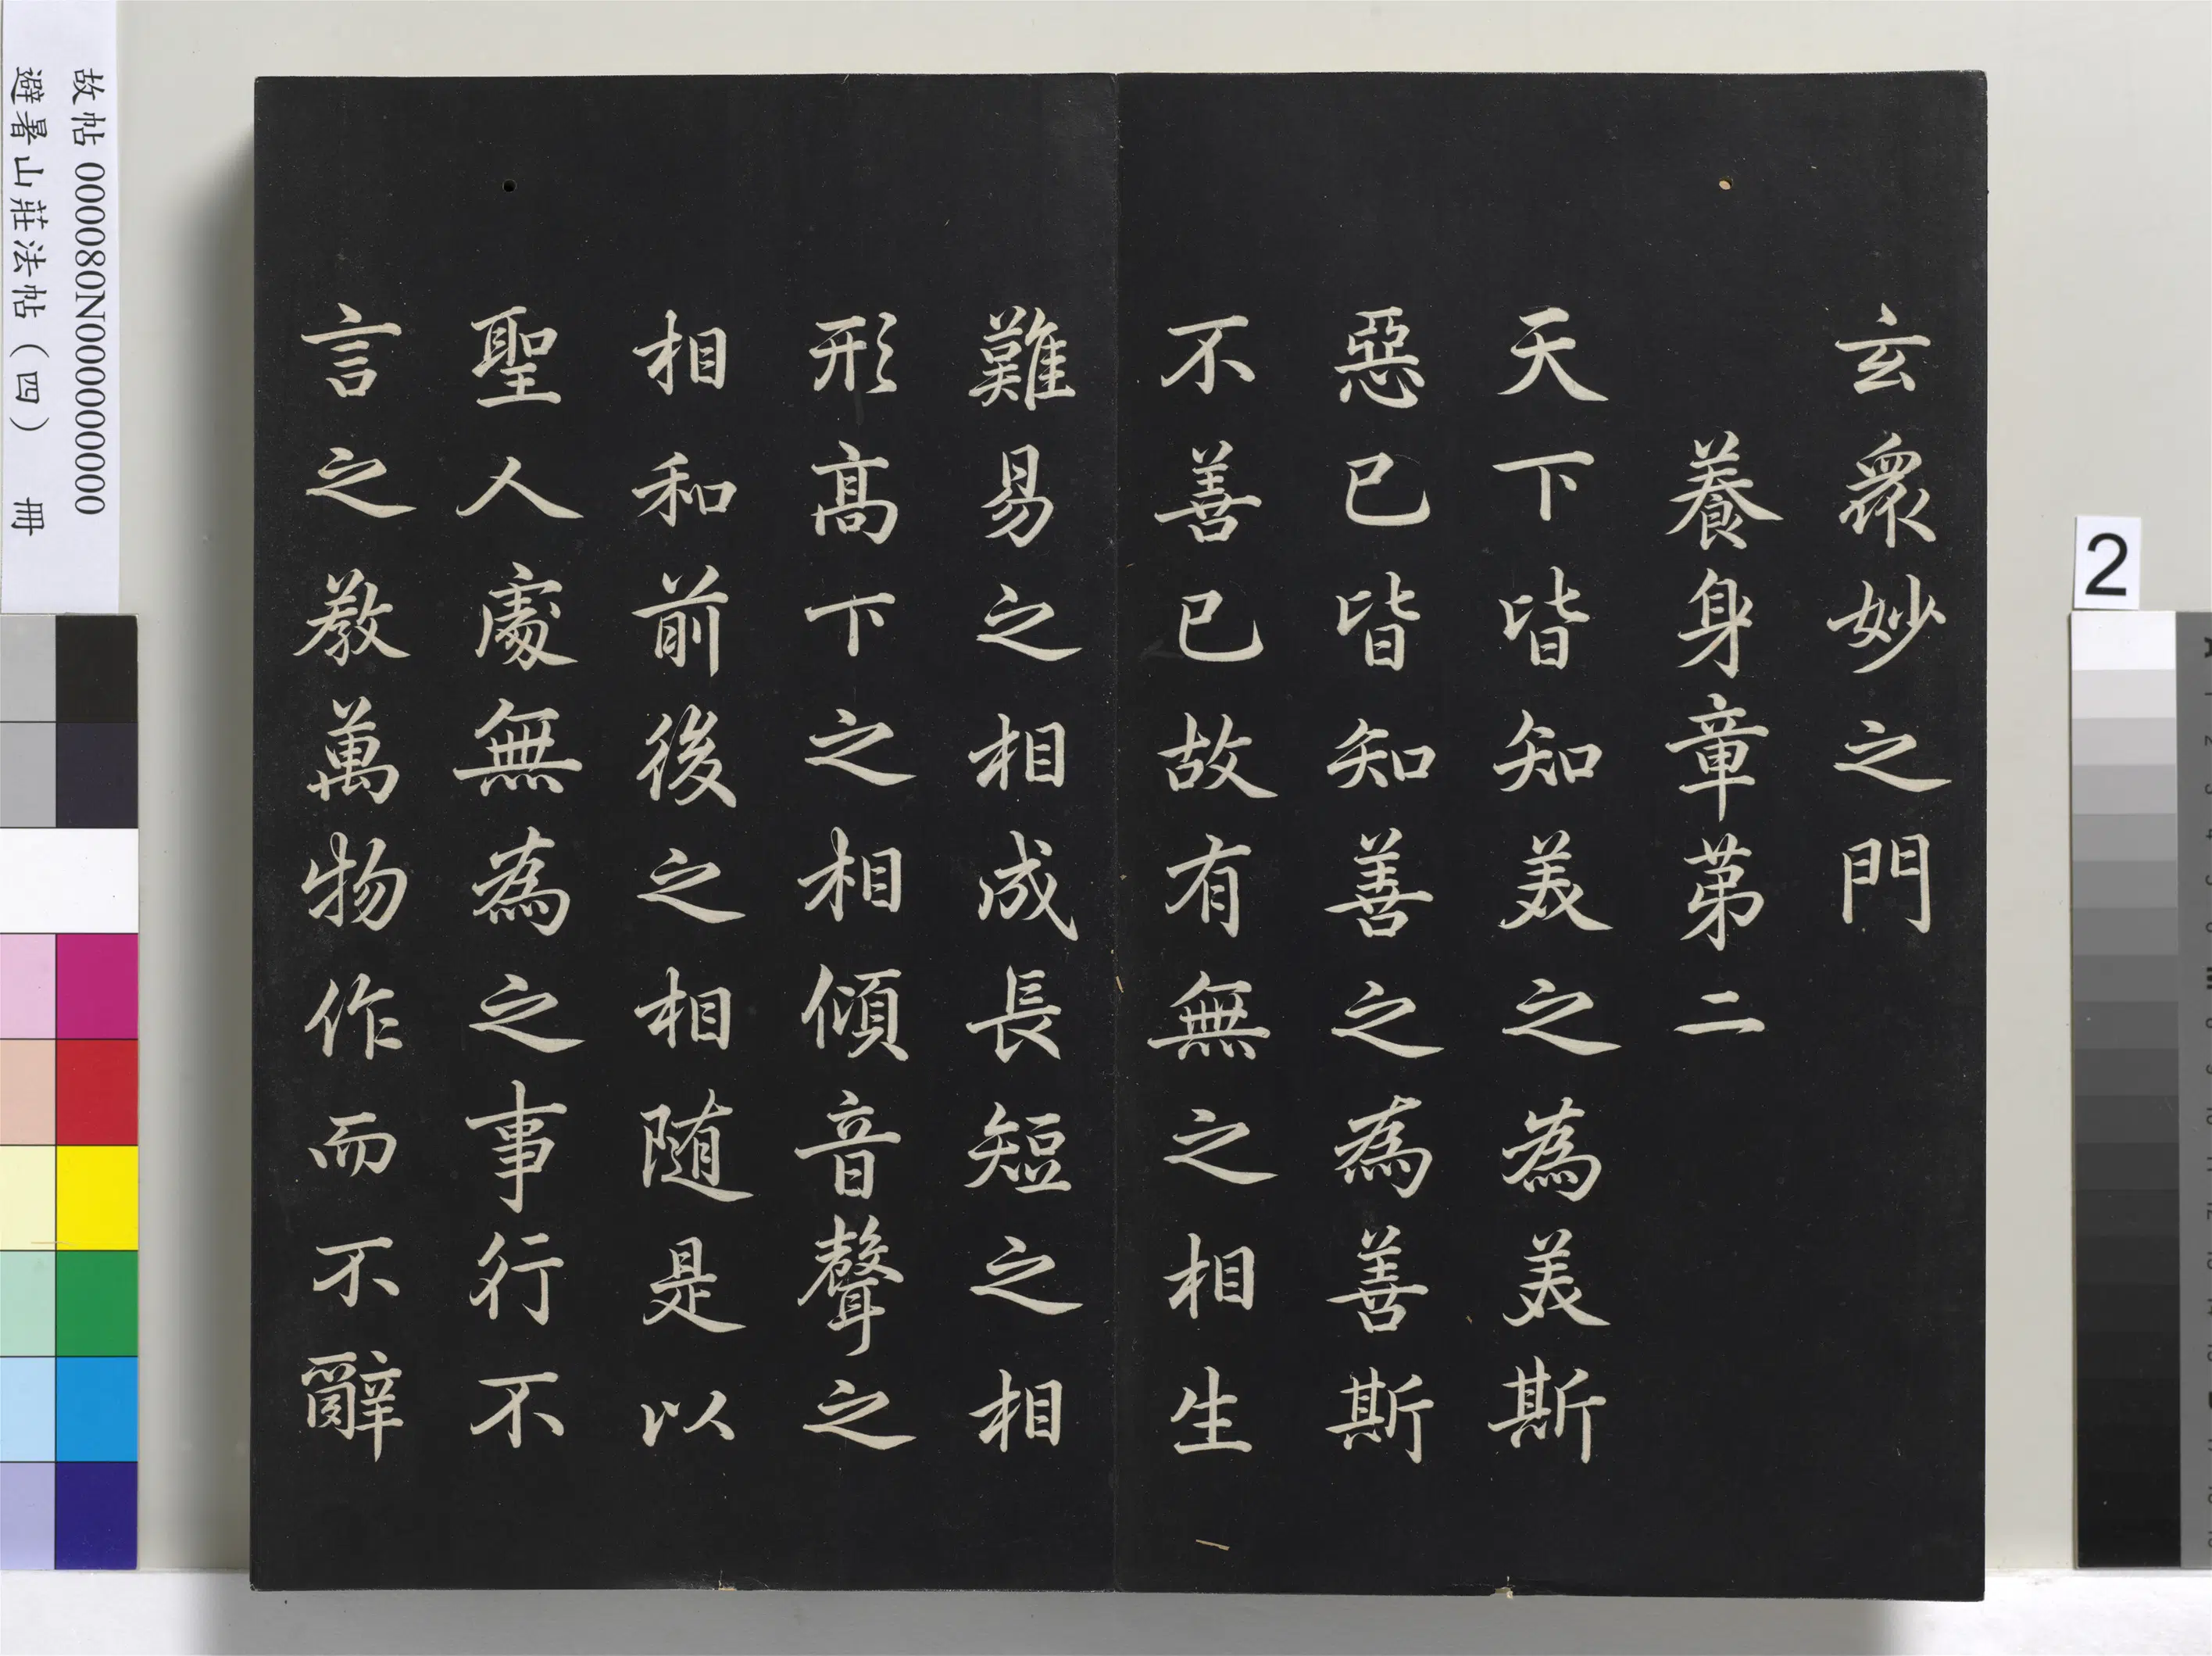 玄眾妙之門
養身章苐二
天下皆知美之為美斯
惡已皆知善之為善斯
不善已故有無之相生
難易之相成長短之相
形髙下之相傾音聲之
相和前後之相随是以
聖人處無為之事行不
言之教萬物作而不辭
故帖 000080N000000000
避暑山莊法帖（四） 冊
2